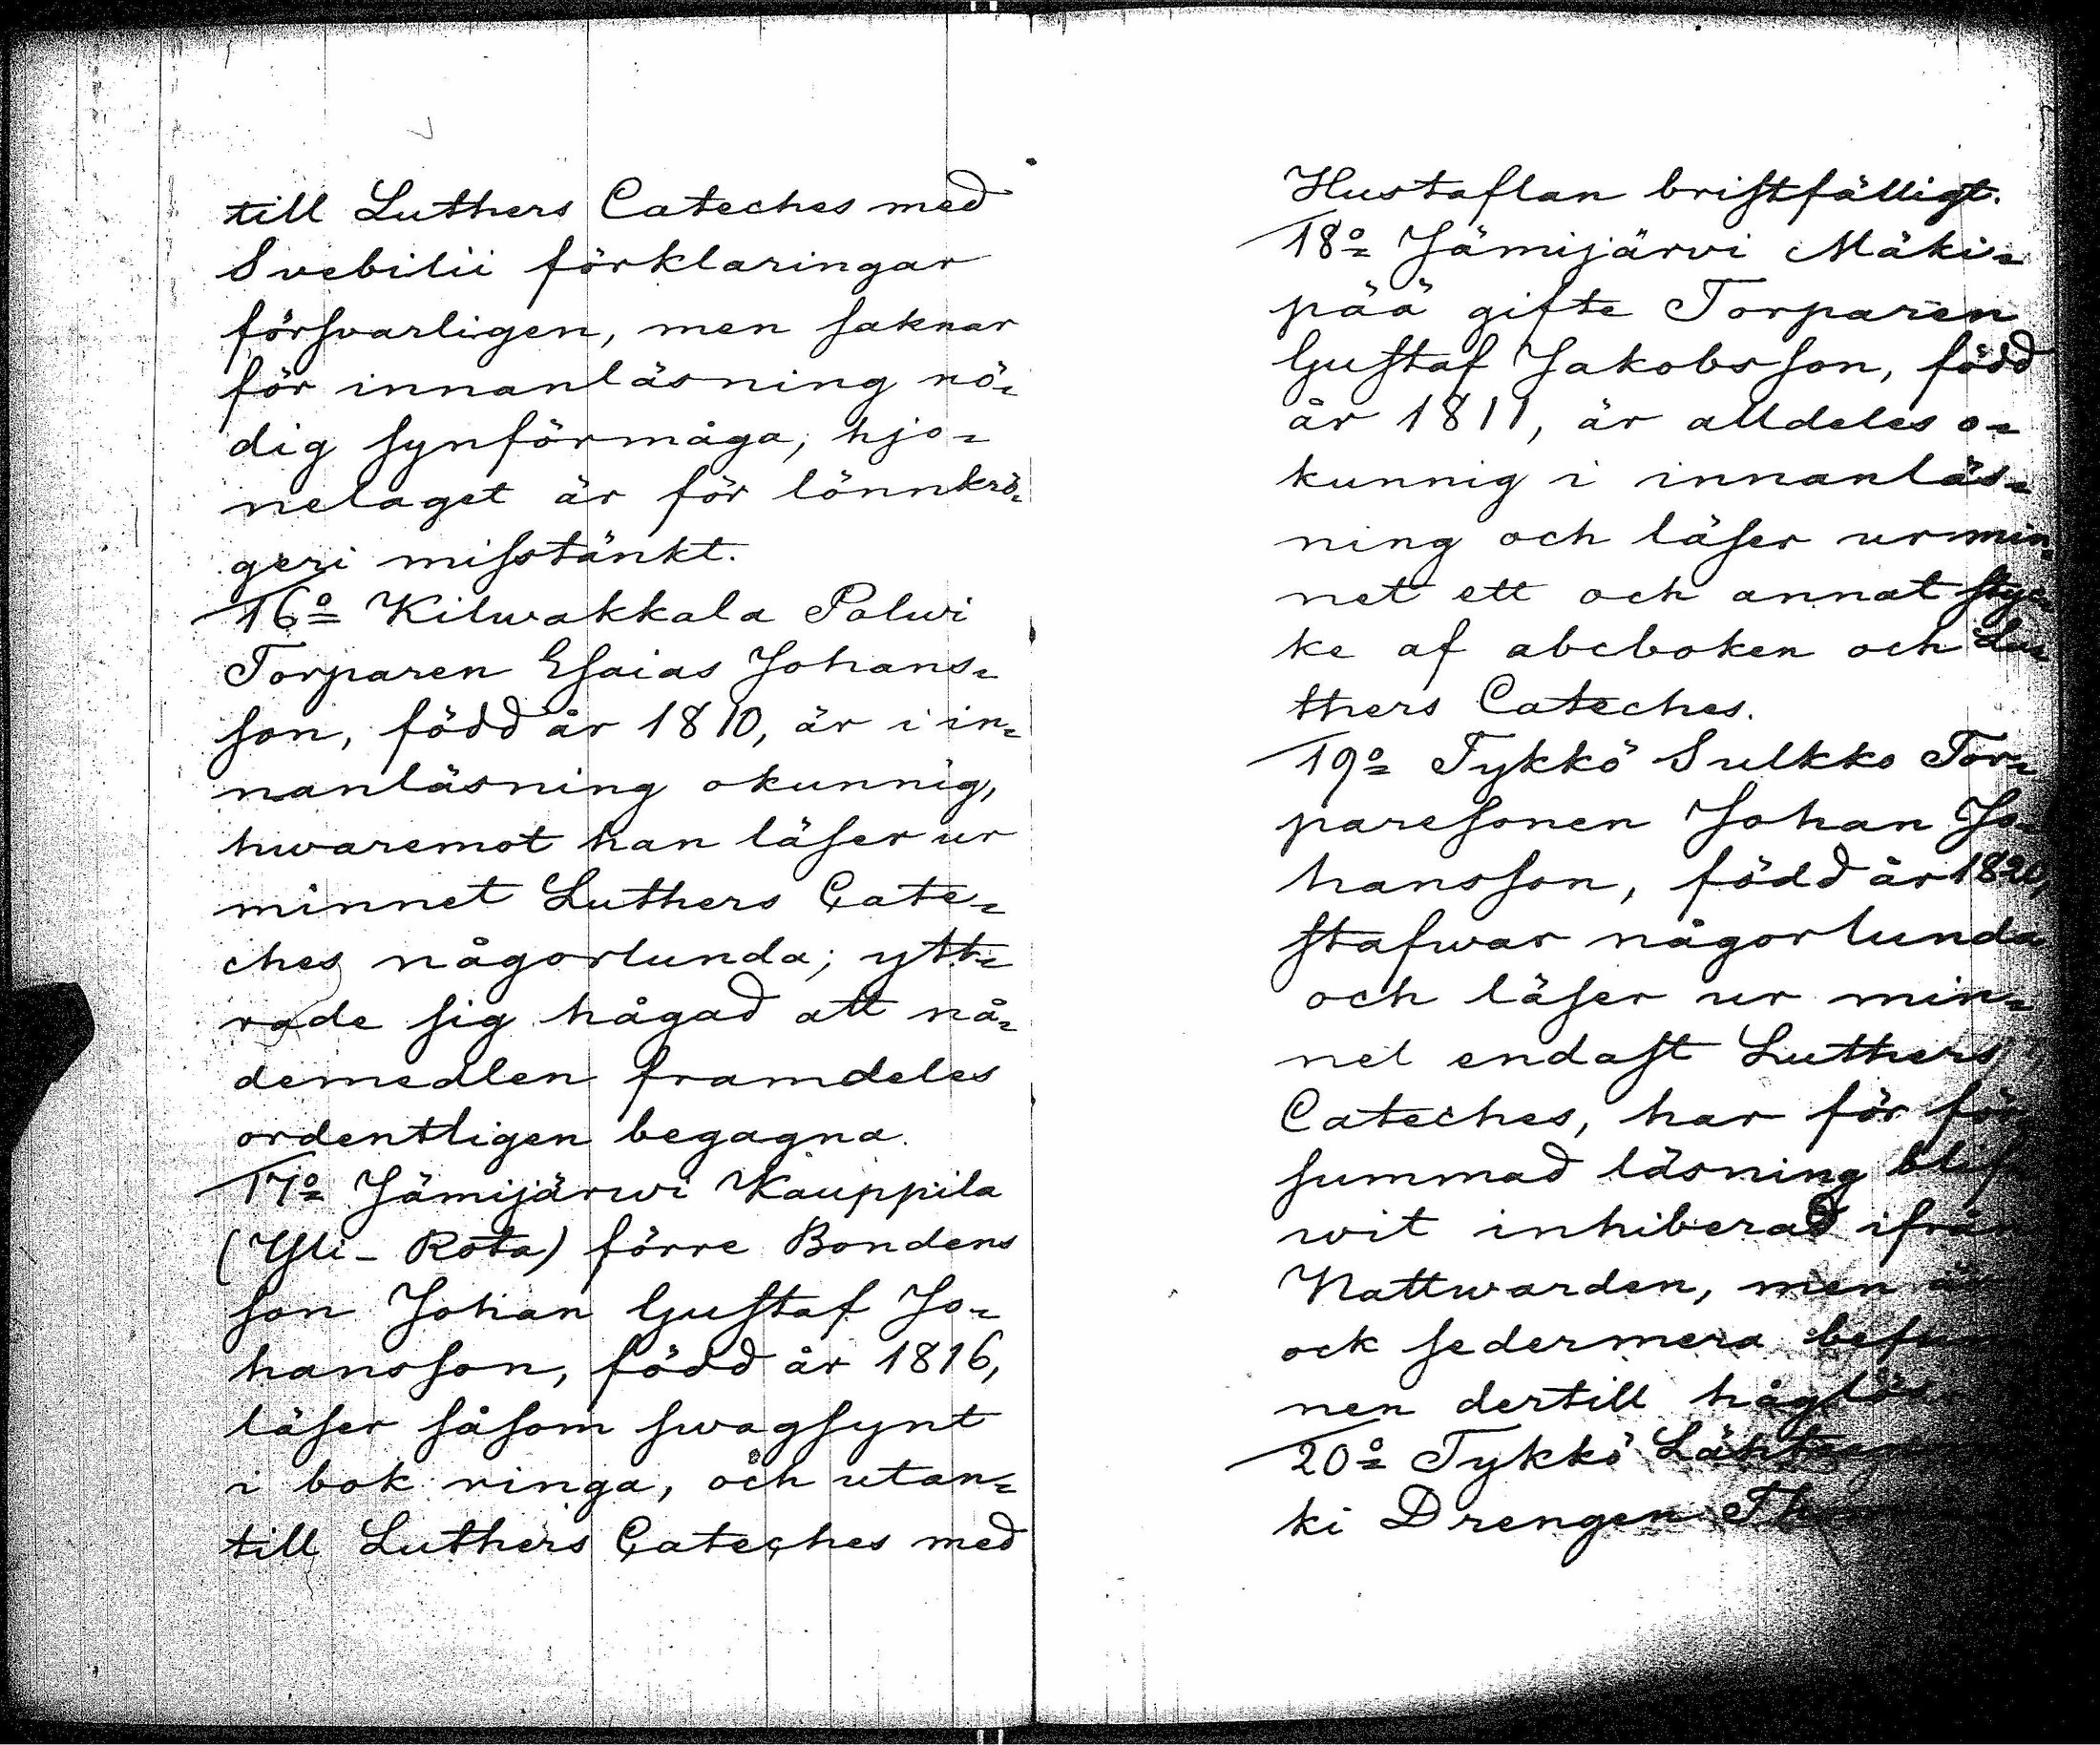 till Luthers Cateches med
Svebilii förklaringar
försvarligen, men saknar
för innanläsning nö=
dig synförmåga; hjo=
nelaget är för lönnkrö=
geri misstänkt.
16º= Kilwakkala Polwi
Torparen Esaias Johans=
son, född år 1810, är i in=
nanläsning okunnig,
hwaremot han läser ur
minnet Luthers Cate=
ches någorlunda; ytt=
rade sig hågad att nå=
demedlen framdeles
ordentligen begagna.
17º= Jämijärwi Kauppila
(Yli-Rota) förre Bondens
son Johan Gustaf Jo=
hansson, född år 1816,
läser såsom swagsynt
i bok ringa, och utan=
till Luthers Cateches med
Hustaflan bristfälligt.
18º= Jämijärvi Mäki=
pää gifte Torparen
Gustaf Jakobsson, född
år 1811, är alldeles o=
kunnig i innanläs=
ning och läser ur min=
net ett och annat styc=
ke af abcboken och Lu=
thers Cateches.
19º= Tykkö Sulkko Tor=
paresonen Johan Jo=
hansson, född år 1820,
stafwar någorlunda
och läser ur min=
net endast Luthers
Cateches, har för för
summad läsning blif
wit inhiberad ifrån
Nattwarden, men är
ock sedermera befun
nen dertill håglös
20º= Tykkö
ki Drengen